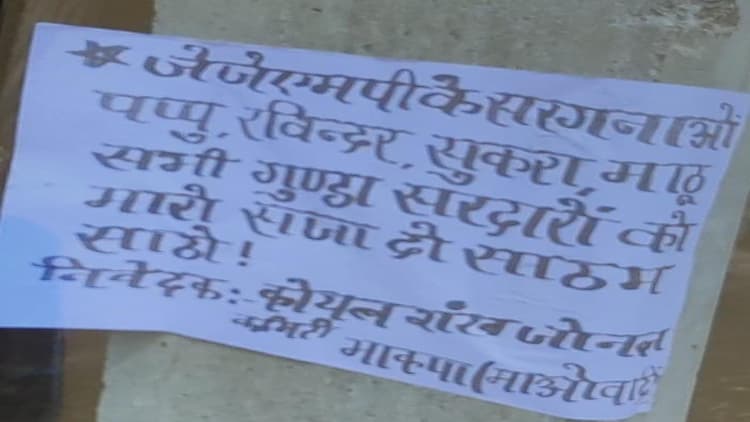 ★ जेजेएमपी के सरगनाओं
पप्पु, रविन्दर, सुकरा, माठू
सभी गुण्डा सरदारों को
मारो सजा दो साठम
साठो!
निवेदक:- कोयल शंख जोनल
कमिटी भाकपा (माओवादी